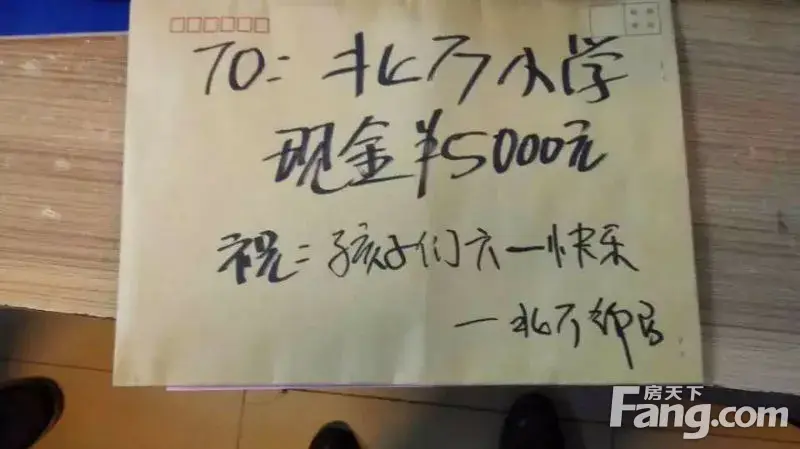 TO: 北万小学
现金¥5000元
祝: 孩子们六一快乐
—北万
房天下
Fang.com